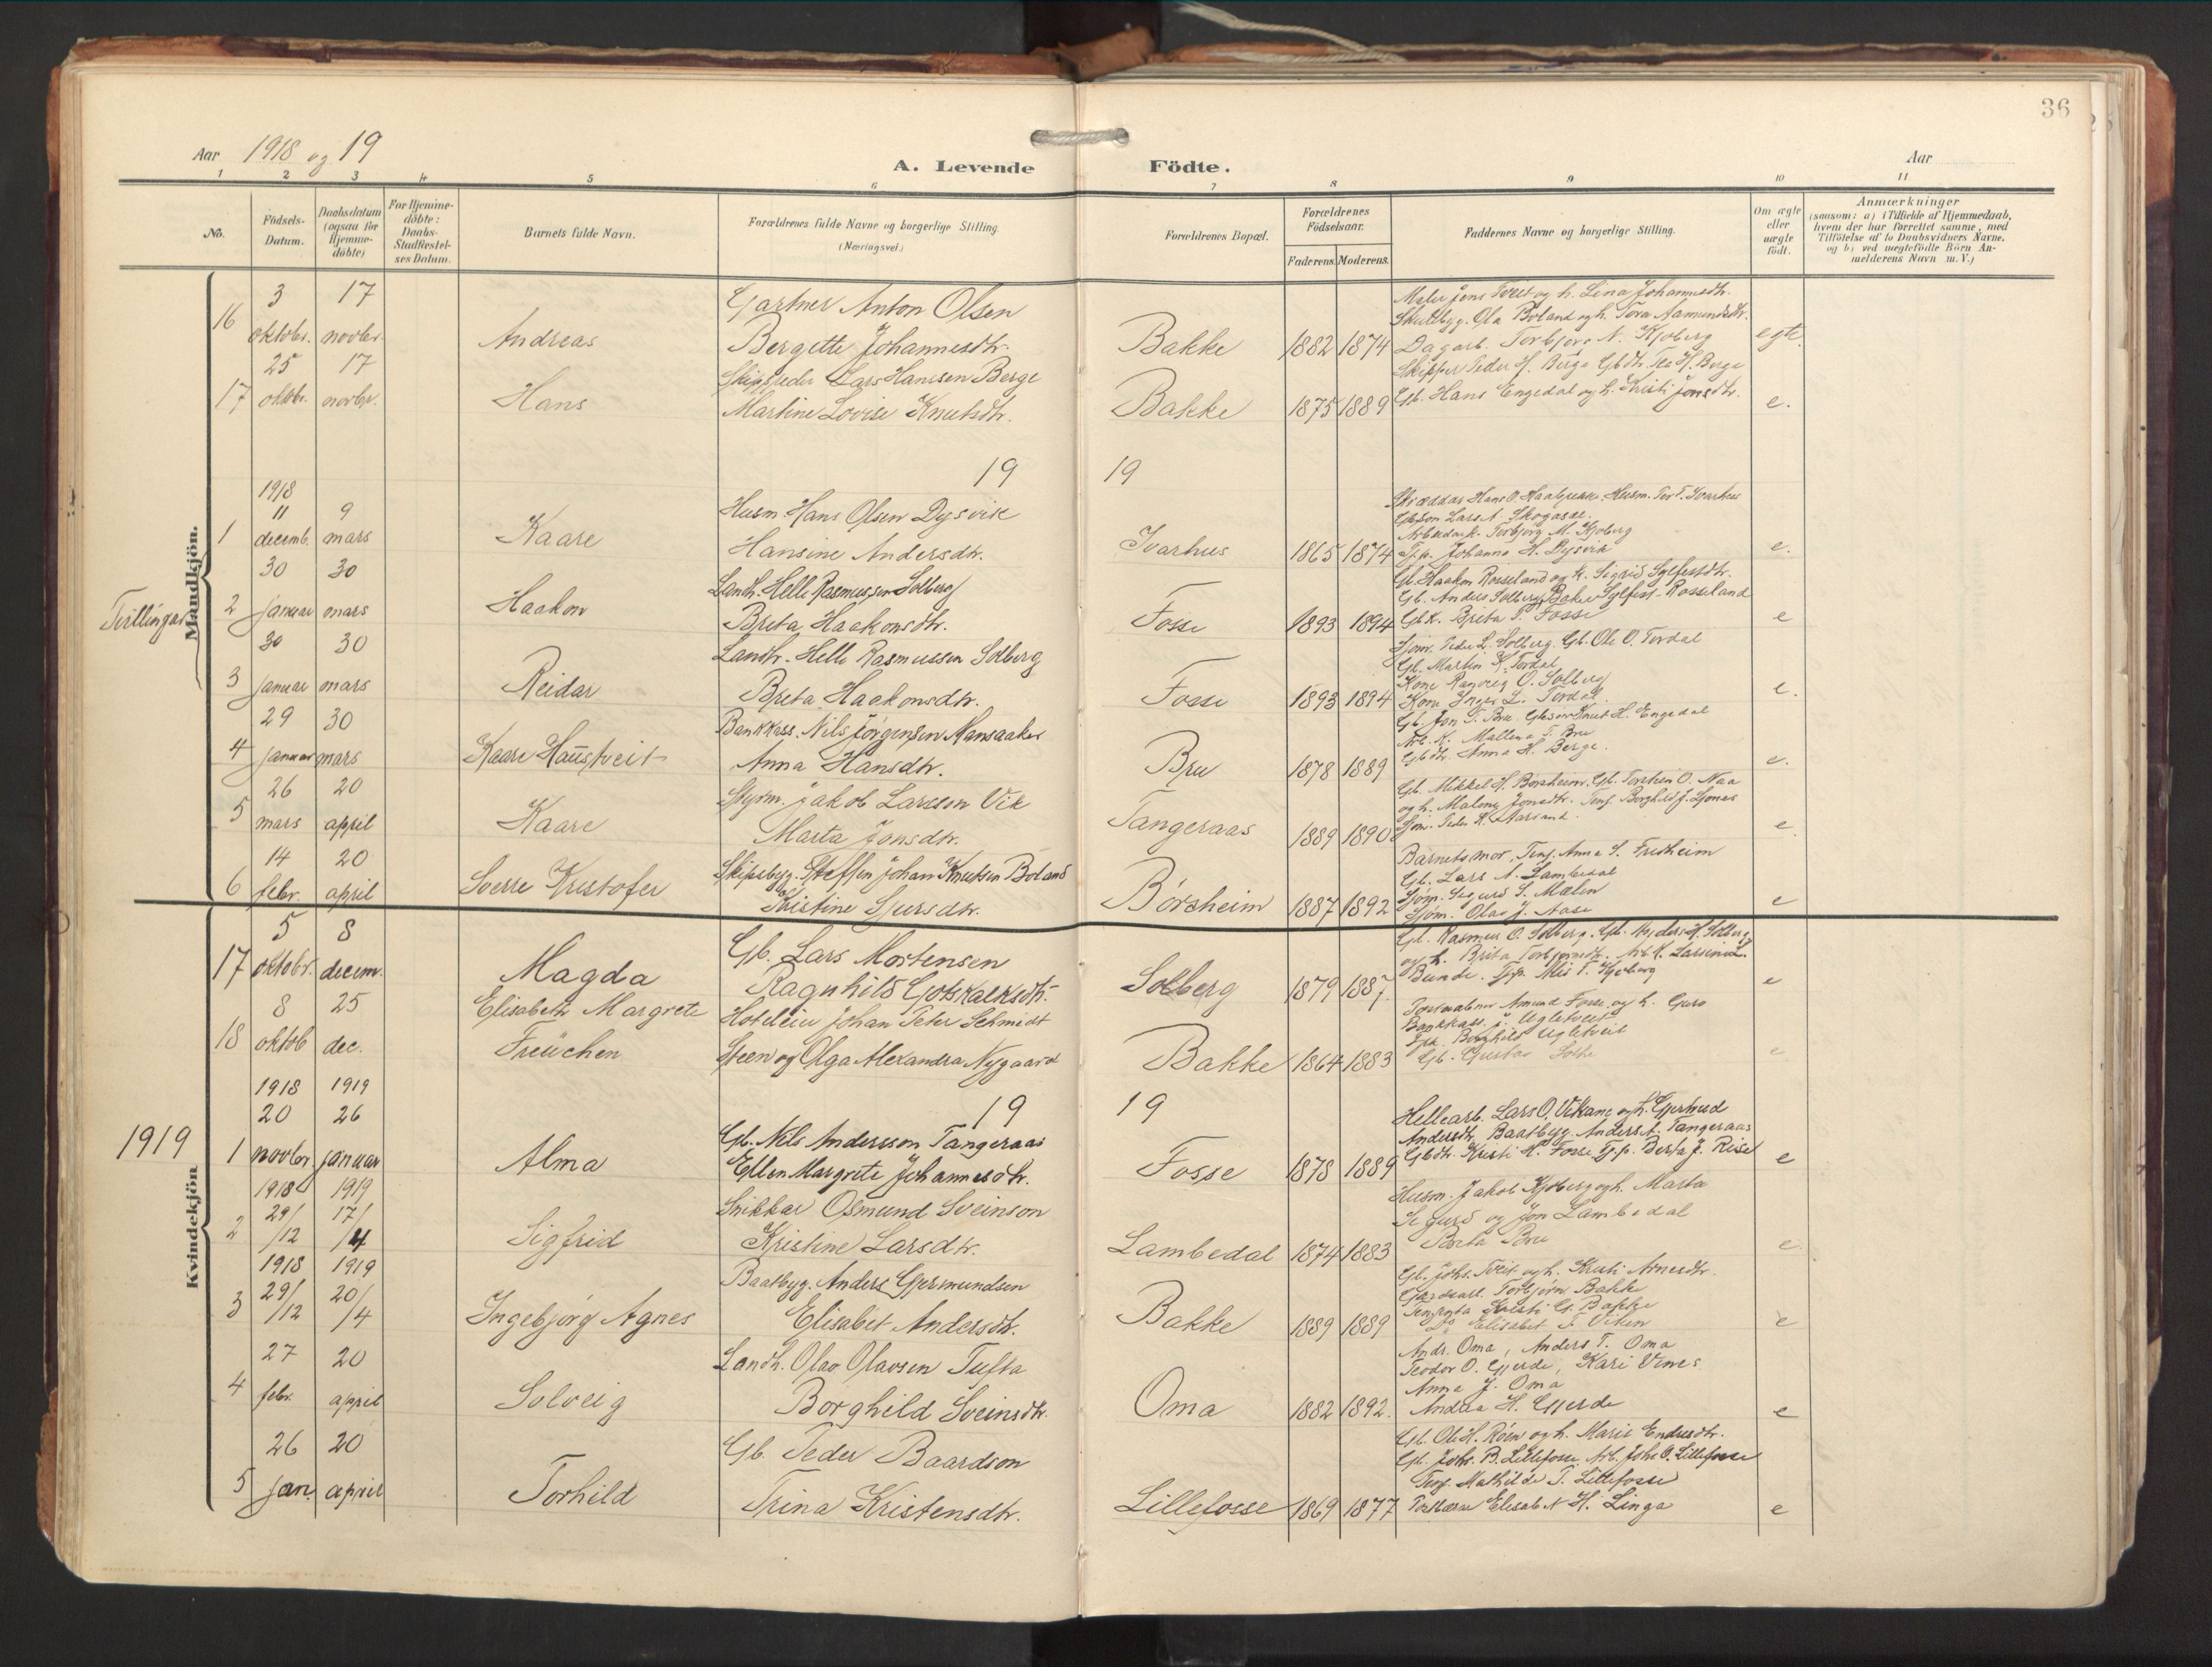 36
Aar 1918 og 19
A. Levende Födte.
Aar
1 2 3 4 5 6 7 8 9 10 11
No.
Födsels-Datum.
Daabsdatum (ogsaa for Hjemme-döbte)
For Hjemme-döbte: Daabs-Stadfæstel-ses Datum.
Barnets fulde Navn.
Forældrenes fulde Navne og borgerlige Stilling. (Næringsvei.)
Forældrenes Bopæl.
Forældrenes Födselsaar.
Faderens. Moderens.
Faddernes Navne og borgerlige Stilling.
Om ægte eller uægte födt.
Anmærkninger
(saasom: a) i Tilfælde af Hjemmedaab, hvem der har forrettet samme, med Tilföielse af to Daabsvidners Navne, og b) ved uegtefödte Börn An-melderens Navn m. V.)
Mandkjön.
16 3 oktober. 17 novbr. Andreas
Gartner Anton Olsen
Bergette Johannesdtr.
Bakke 1882 1874
Maler Jens Tveit og h. Lina Johannesdtr.
Skutbyg. Ola Boland og h. Tora Aamundsdtr.
Dagarb. Torbjørn N. Kjoberg
egte.
17 25 oktbr. 17 novbr. Hans
Skipsreder Lars Hanssen Berge
Martine Lovise Knutsdtr.
Bakke 1875 1889
Skipper Peder H. Berge Gbdtr. Tea H. Berge
Gb. Hans Engedal og h. Kristi Jonsdtr.
e.
19 19
1918
1 11 decemb. 9 mars Kaare
Husm. Hans Olsen Dysvik
Hansine Andersdtr.
Ivarhus 1865 1874
Gbson Lars A. Skogasel.
Torbjörg M. Kjoberg
Tjp. Johanna H. Dysvik
e.
Tvillingar
2 30 januar 30 mars Haakon
Landh. Helle Rasmussen Solberg
Brita Haakonsdtr.
Fosse 1893 1894
Gb. Haakon Rosseland og k. Sigrid Sylfestdtr.
Gb. Anders Solberg Baker Sylfest Rosseland
Gbk. Brita T. Fosse
e
3 30 januar 30 mars Reidar
Landh. Helle Rasmussen Solberg
Brita Haakonsdtr.
Fosse 1893 1894
Sjöm. Peder L. Solberg. Gb. Ole O. Tordal
Gb. Martin K. Tordal
Kone Ranveig O. Solberg
Kone Inger L. Tordal
e.
4 29 januar 30 mars Kaare Haustveit
Bankkass. Nils Jörgensen Mansaaker
Anna Hansdtr.
Bru 1878 1889
Gb. Jon T. Bru. Gbson Knut H. Engedal
Arb. K. Mallena T. Bru
Gbdtr. Anna H. Berge.
e.
5 26 mars 20 april Kaare
Styrm. Jakob Larssen Vik
Marta Jonsdtr.
Tangeraas 1889 1890
Gb. Mikkel H. Börsheim. Gb. Torstein O. Naa
og h. Malene Jonsdtr. Tenj. Borghild J. Ljones
Sjöm. Peder K. Aarsand.
e.
6 14 febr. 20 april Sverre Kristofer
Skipsbyg. Steffen Johan Knutsen Boland
Kristine Sjursdtr.
Börsheim 1887 1892
Barnets mor, Tenj. Anna S. Fridheim
Gb. Lars A. Lambedal
Sjöm. Sigurd S. Mælen
Sjöm. Olav J. Aase
e
Kvindekjön
17 5 oktobr. 8 decem. Magda
Gb. Lars Mortensen
Ragnhild Gotskalksdtr.
Solberg 1879 1887
Gb. Rasmus O. Solberg. Gb. Anders H. Solberg
og h. Brita Torbjörnsdtr. Arb.k. Larsina L.
Bunde. Tjp. Alis T. Kjoberg
e
18 8 oktob 25 dec. Elisabeth Margrete
Freüchen
Hoteleier Johan Peter Schmidt
Steen og Olga Alexandra Nygaard
Bakke 1864 1883
Postaabner Amund Fosse og h. Guro
Bankkass. J. Ugletveit
Frk. Borghild Ugletveit
Gb. Gustav Sothe
e
1918 1919
19 19
1919
1 20 novbr 26 januar Alma
Gb. Nils Andersson Tangeraas
Ellen Margrete Johannesdtr.
Fosse 1878 1889
Hellearb. Lars O. Vikane og h. Gjertrud
Andersdtr, Baatbyg. Anders A. Tangeraas
Gbdtr. Kristi H. Fosse Tjp. Berta J. Rise
e
1918 1919
2 29/12 17/4 Sigfrid
Snikkar Osmund Sveinson
Kristine Larsdtr.
Lambedal 1874 1883
Husm. Jakob Kjoberg og h. Marta
Sigurd og Jon Lambedal
Brita Bru
e.
1918 1919
3 29/12 20/4 Ingebjörg Agnes
Baatbyg. Anders Gjermundsen
Elisabet Andersdtr.
Bakke 1889 1889
Gb. Johs. Tveit og h. Kristi Arnesdtr.
Torbjörn Bakke
Kristi G. Bakke
Do Elisabet T. Viken
e
4 27 febr. 20 april Solveig
Landh. Olav Olavsen Tufta
Borghild Sveinsdtr.
Oma 1882 1892.
Andr. Oma, Anders T. Oma
Teodor O. Gjerde, Kari Vines
Anna J. Oma
Andrea H. Gjerde
e
5 26 jan. 20 april Torhild
Gb. Peder Baardson
Trina Kristensdtr.
Lillefosse 1869 1877
Gb. Ole H. Röen og h. Marie Endresdtr.
Gb. Johs. B. Lillefosse Arb. Johs O. Lillefosse
Tenj. Mathilde T. Lillefosse
Elisabet H. Linga
e